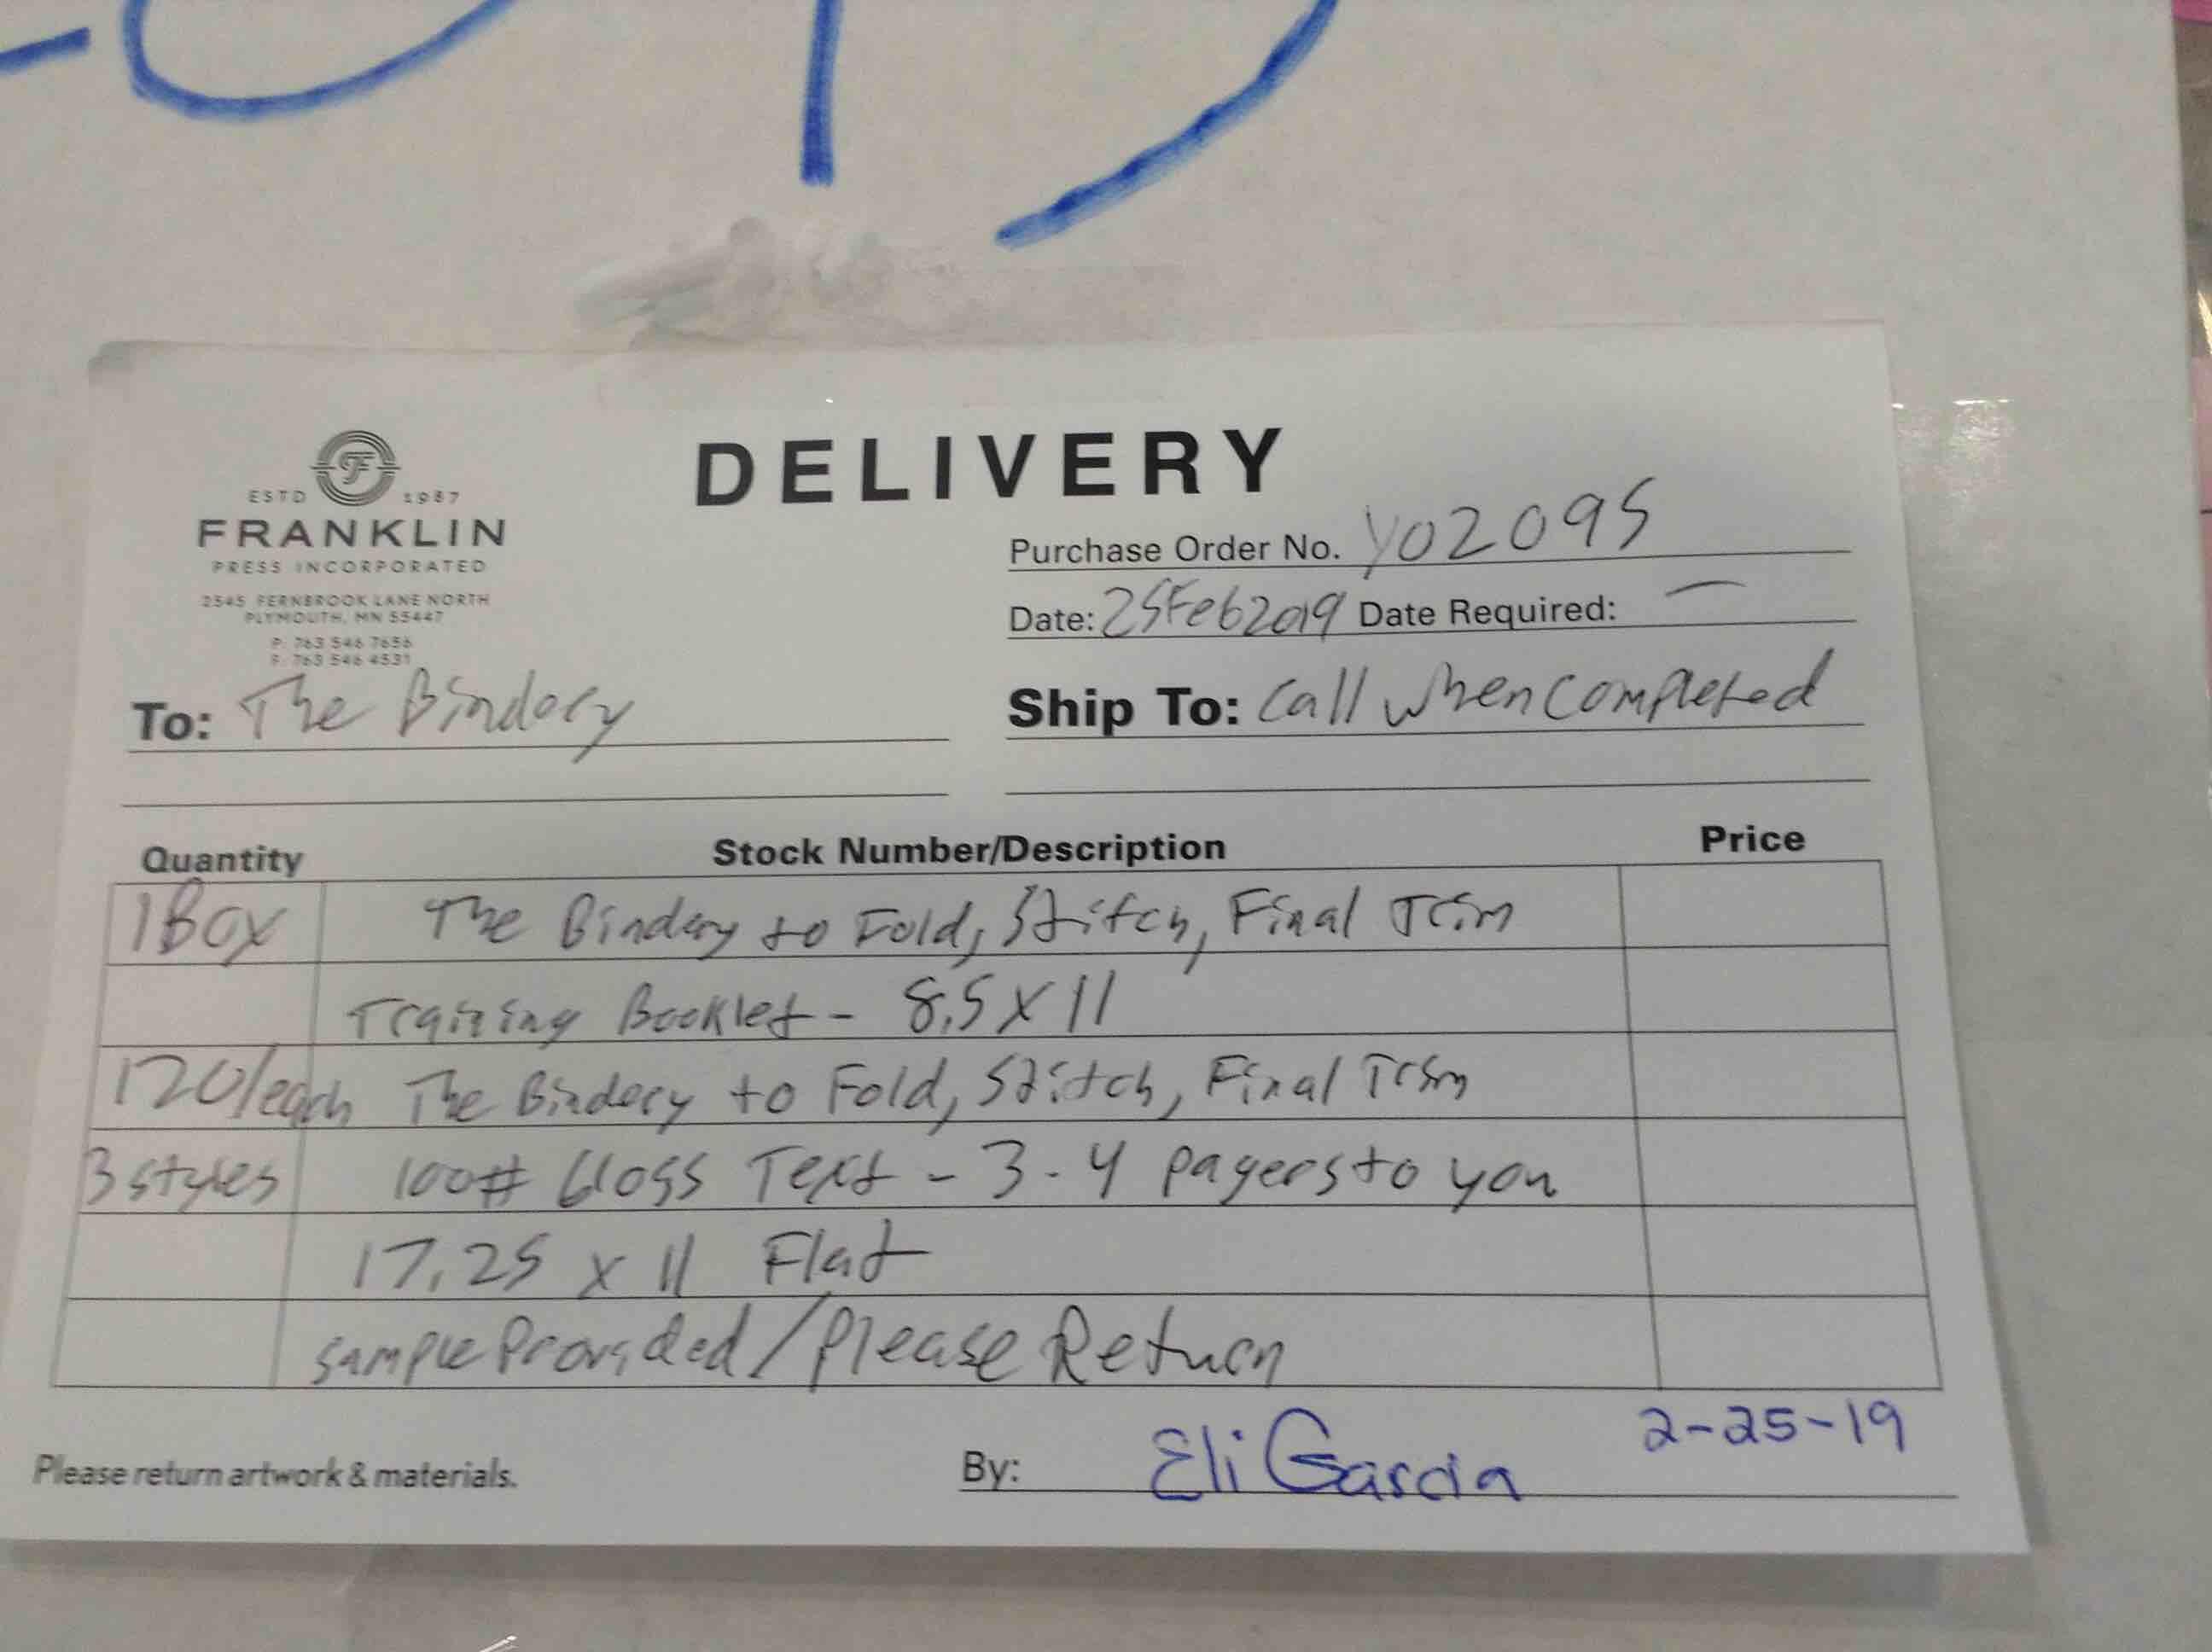 DELIVERY
ESTD 1987
FRANKLIN
PRESS INCORPORATED
2545 FERNBROOK LANE NORTH
PLYMOUTH, MN 55447
P: 763 546 7656
F: 763 546 4531
Purchase Order No. Y02095
Date: 25Feb2019 Date Required: —
To: The Bindery
Ship To: Call when completed
Quantity Stock Number/Description Price
1 Box The Bindery to Fold, Stitch, Final Trim
Training Booklet - 8.5 x 11
120/each The Bindery to Fold, Stitch, Final Trim
3 styles 100# Gloss Text - 3 - 4 pagers to you
17.25 x 11 Flat
Sample Provided / Please Return
2-25-19
Please return artwork & materials. By: Eli Garcia